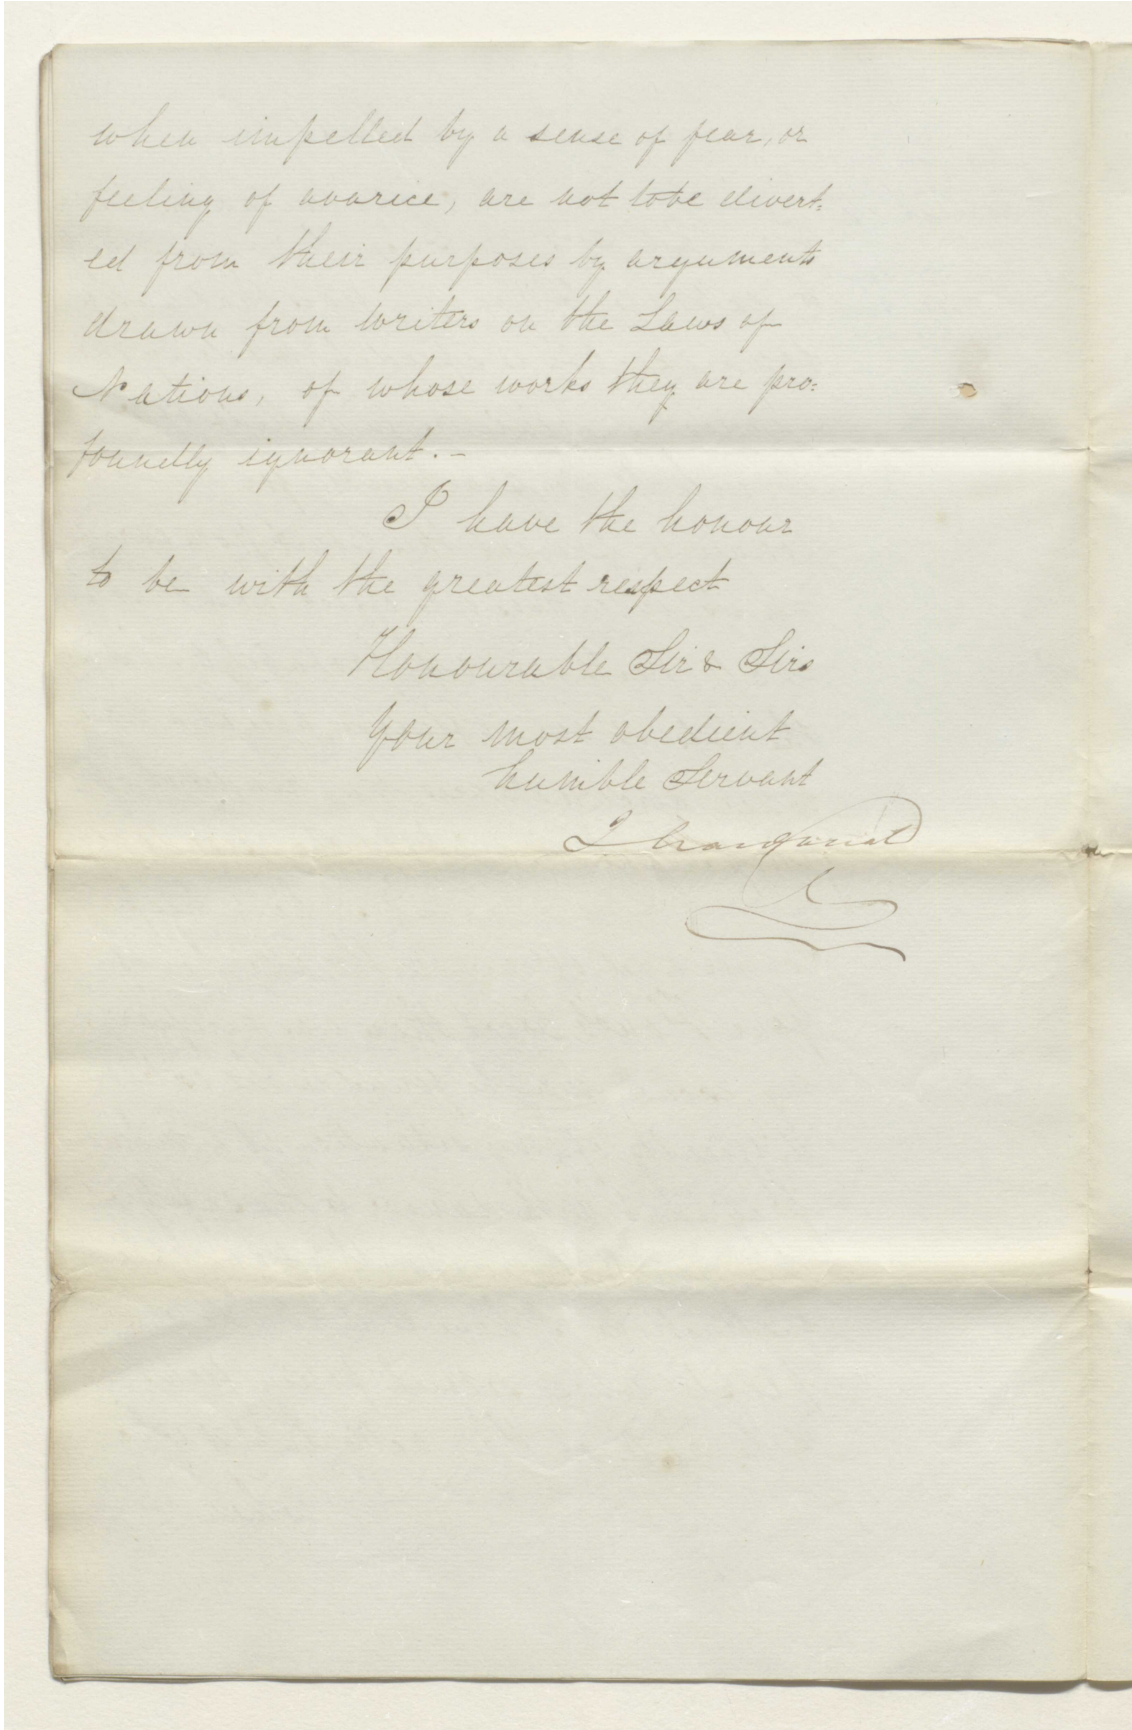 when impelled by a sense of fear, or
feeling of avarice, are not to be divert=
ed from their purposes by arguments
drawn from writers on the Laws of
Nations, of whose works they are pro=
foundly ignorant. -
I have the honour
to be with the greatest respect
Honourable Sir & Sirs
Your most obedient
humble Servant